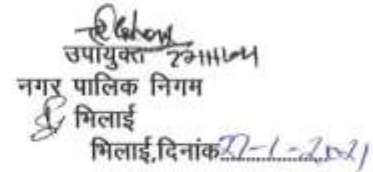 उपायुक्त
नगर पालिक निगम
भिलाई
भिलाई,दिनांक 27-1-2021